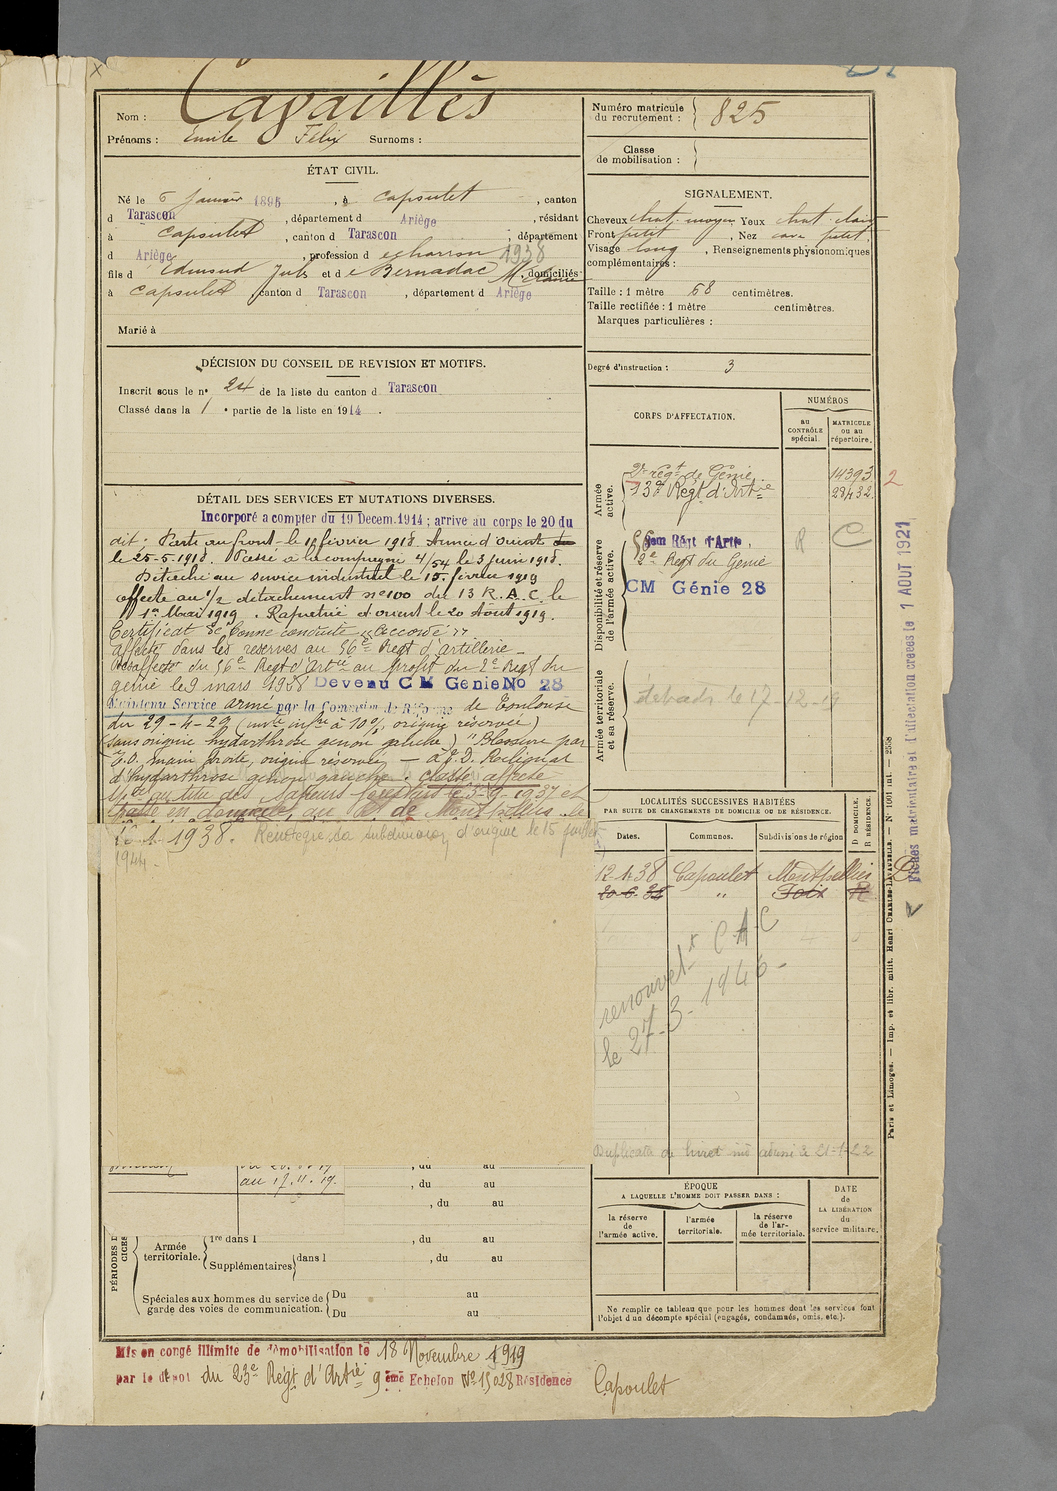 Nom : Cavaillès
Prénoms : Emile Félix Surnoms :
Numéro matricule du recrutement : 825
Classe de mobilisation :
ÉTAT CIVIL.
Né le 6 janvier 1895, à Capoulet, canton
d Tarascon, département d Ariège, résidant
à Capoulet, canton d Tarascon, département
d Ariège, profession d 1938
fils d Edmond Jules et de Bernadac Mélanie, domiciliés
à Capoulet canton d Tarascon, département d Ariège
Marié à
SIGNALEMENT.
Cheveux chat. moyen Yeux chat. clair
Front petit, Nez cave petit
Visage long, Renseignements physionomiques
complémentaires :
Taille : 1 mètre 68 centimètres.
Taille rectifiée : 1 mètre centimètres.
Marques particulières :
Degré d'instruction : 3
DÉCISION DU CONSEIL DE REVISION ET MOTIFS.
Inscrit sous le n° 24 de la liste du canton d Tarascon
Classé dans la 1 e partie de la liste en 1914.
CORPS D'AFFECTATION.
NUMÉROS
au CONTRÔLE spécial.
MATRICULE ou au répertoire.
Armée active.
2e régt de Génie 14393 2
13e Régt d'Artie 28432
Disponibilité et réserve de l'armée active.
56em Régt d'Artie. R C
2e Regt du Génie
CM Génie 28
Armée territoriale et sa réserve.
le 17-12-19
DÉTAIL DES SERVICES ET MUTATIONS DIVERSES.
Incorporé a compter du 19 Decem. 1914 ; arrive au corps le 20 du
dit ; Parti au front le février 1918 Armée d'orient
le 25-5-1918. Passé à la compagnie 4/54 le 3 juin 1918.
Détaché au service industriel le 15 février 1919
affecté au 1/2 détachement n° 100 du 13 R.A.C. le
1er Mars 1919. Rapatrié d'orient le 20 Août 1919.
Certificat de bonne conduite "Accordé".
Affecté dans les réserves au 56e Regt d'artillerie -
Réaffecté du 56e Regt d'Artie au profit du 2e Regt du
génie le 9 mars 1928 Devenu CM Génie No 28
Maintenu Service armé par la Commission de Réforme de Toulouse
du 29-4-29 (invté infre à 10%, origine réservée)
(sans origine hydarthrose genou gauche) "Blessure par
E.O. main droite, origine réservée — à E.D. Reliquat
d'hydarthrose genou gauche". classé affecté
au titre des Sapeurs forestiers le 3-9-1937 et
passé en domicile, au de Montpellier le
12-1-1938. Réintègre sa subdivision d'origine le 15 juillet
1944.
LOCALITÉS SUCCESSIVES HABITÉES
PAR SUITE DE CHANGEMENTS DE DOMICILE OU DE RÉSIDENCE.
Dates. Communes. Subdivisions de région D DOMICILE. R RÉSIDENCE.
12-1-38 Capoulet Montpellier D
20-6-38 " Foix R
renouvelt CAC
le 27-3-1946-
Duplicata de livret ind 21-1-22
, du au
au 17.11.19. , du au
, du au
PÉRIODES D
CICES
Armée territoriale.
1re dans l , du au
Supplémentaires dans l , du au
Spéciales aux hommes du service de garde des voies de communication.
Du au
Du au
ÉPOQUE
A LAQUELLE L'HOMME DOIT PASSER DANS :
la réserve de l'armée active.
l'armée territoriale.
la réserve de l'armée territoriale.
DATE de LA LIBÉRATION du service militaire.
Ne remplir ce tableau que pour les hommes dont les services font
l'objet d'un décompte spécial (engagés, condamnés, omis, etc.).
Mis en congé illimité de démobilisation le 18 Novembre 1919
par le dépot du 23e Régt d'Artie 9 ème Echelon No 15028 Résidence Capoulet
Fiches matriculaire et d'affectation créées le 1 AOUT 1921
Paris et Limoges. — Imp. et libr. milit. Henri CHARLES-LAVAUZELLE. — N° 1001 int. — 2558